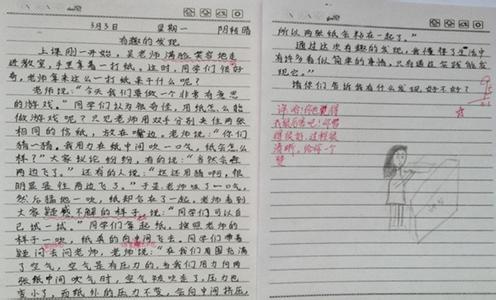 3月3日 星期一 阴转晴
有趣的发现
上课刚一开始，吴老师满脸笑容地走
进教室，手里拿着一打纸。这时，同学们很好
奇，老师拿来这么一打纸来干什么呢？
老师说：“今天我们要做一个非常有意思
的游戏。”同学们认为很奇怪，用纸怎么能
做游戏呢？只见老师用双手分别夹住两张
相同的信纸，放在嘴边。老师说：“你们
猜一猜，我用力在纸中间吹一口气，纸会怎么
样？”大家议论纷纷，有的说：“当然会飘
两边飞了。”还有的人说：“这还用猜啊，很
明显是往两边飞了。”于是老师吸了一口气，
然后猛地一吹，纸却合在了一起。老师看到
大家疑惑不解的样子，说：“同学们可以自
己试一试。”同学们拿起纸，按照老师的
样子一吹，纸真的向中间飞去。同学们带着
疑问去问老师，老师说：“在我们周围充满
了空气，空气是有压力的，当我们用力向两
张纸中间吹气时，空气被吹走了，压力也
变小了，而纸外的压力不变，会向中间挤压，
所以两张纸会粘在一起了。”
通过这次有趣的发现，我懂得了生活中
有许多看似简单的事情，只有通过实践能发
现它。”
猜你们告诉我有什么发现好不好？
清晰，给你一个
赞